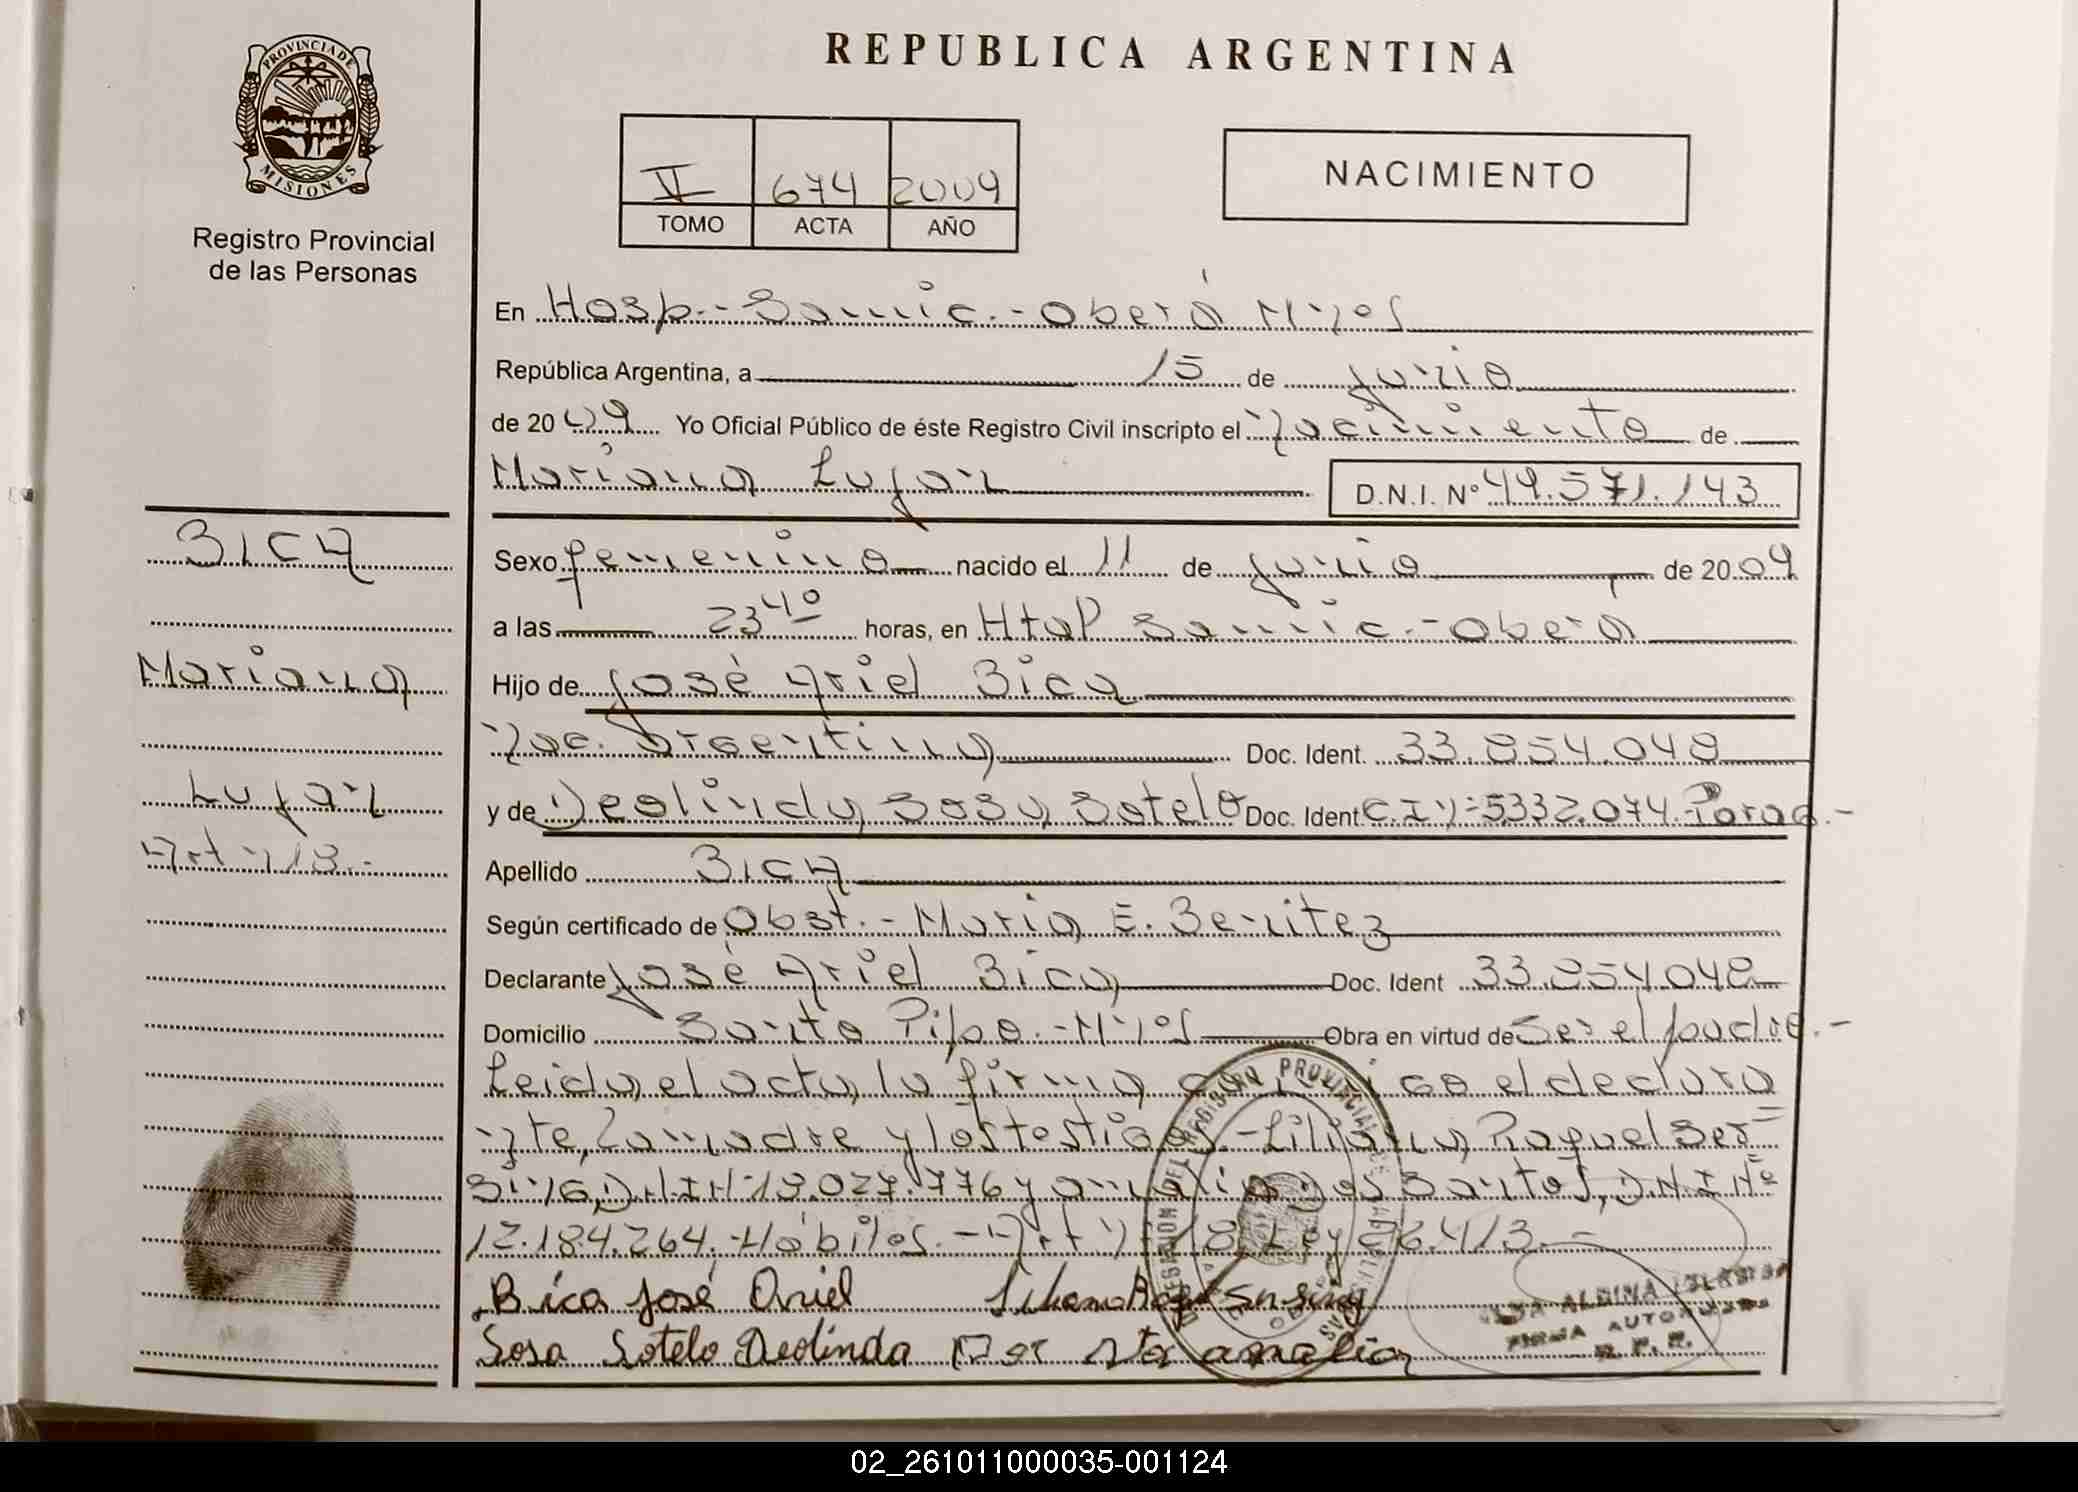 PROVINCIA DE
MISIONES
Registro Provincial
de las Personas
REPUBLICA ARGENTINA
V 674 2009
TOMO ACTA AÑO
NACIMIENTO
En Hosp.- Samic.- Oberá Mnes
República Argentina, a 15 de junio
de 2009 Yo Oficial Público de éste Registro Civil inscripto el Nacimiento de
Mariana Lujan D.N.I. Nº 49.571.143
Sexo femenino nacido el 11 de junio de 2009
a las 23 40 horas, en Htal Samic.- Obera
Hijo de José Ariel Bica
Nac. Argentina Doc. Ident. 33.854.048
y de Deolinda Sosa Sotelo Doc. Ident C.I Nº 5332.074. Parag.-
Apellido BICA
Según certificado de Obst.- Maria E. Benitez
Declarante José Ariel Bica Doc. Ident 33.854.048
Domicilio Santo Pipo.- Mnes Obra en virtud de Ser el padre.-
Leida el acta, la firma conmigo el declara
nte, La madre y los testigos.- Liliana Raquel Ser
sing D.N.I Nº 18.027.776 y amalia dos Santos, D.N.I Nº
12.184.264. Hábiles.- Art Nº 18 Ley 26.413.-
Bica José Ariel
Sosa Sotelo Deolinda Dos Stos amalia
FIRMA AUTORIZADA
R. P. P.
BICA
Mariana
Lujan
Art Nº 18.-
02_261011000035-001124